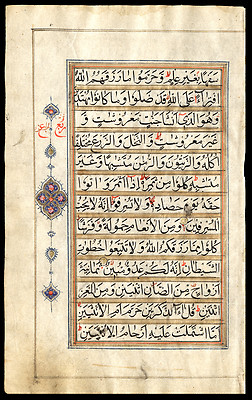 سفها بغير علم وحرموا ما رزقهم الله
افتراء على الله قد ضلوا وما كانوا مهتدين
وهو الذي انشا جنت معروشت و
غير معروشت والنخل والزرع مختلفا
اكله والزيتون والرمان متشبها وغير
متشبه كلوا من ثمره اذا اثمر واتوا
حقه يوم حصاده ولا تسرفوا انه لا يحب
المسرفين ومن الانعام حمولة وفرشا
كلوا مما رزقكم الله ولا تتبعوا خطوت
الشيطان انه لكم عدو مبين ثمنية
ازواج من الضان اثنين ومن المعز
اثنين قل ءالذكرين حرم ام الانثيين
اما اشتملت عليه ارحام الانثيين